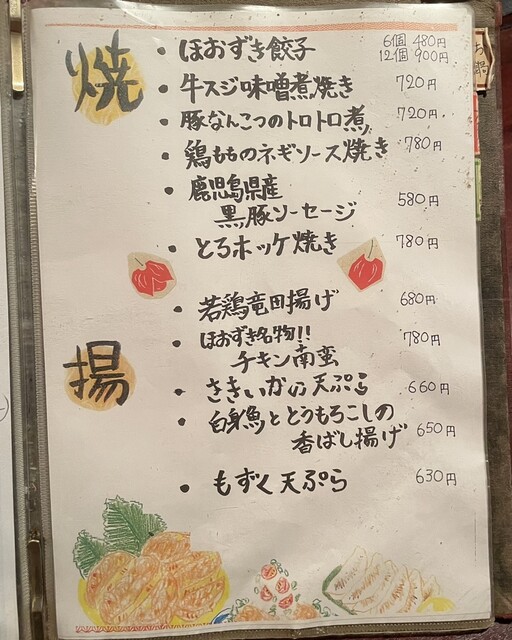 焼
ほおずき餃子 6個 480円
12個 900円
牛スジ味噌煮焼き 720円
豚なんこつのトロトロ煮 720円
鶏もものネギソース焼き 780円
鹿児島県産
黒豚ソーセージ 580円
とろホッケ焼き 780円
揚
若鶏竜田揚げ 680円
ほおずき名物!!
チキン南蛮 780円
さきいかの天ぷら 660円
白身魚ととうもろこしの
香ばし揚げ 650円
もずく天ぷら 630円